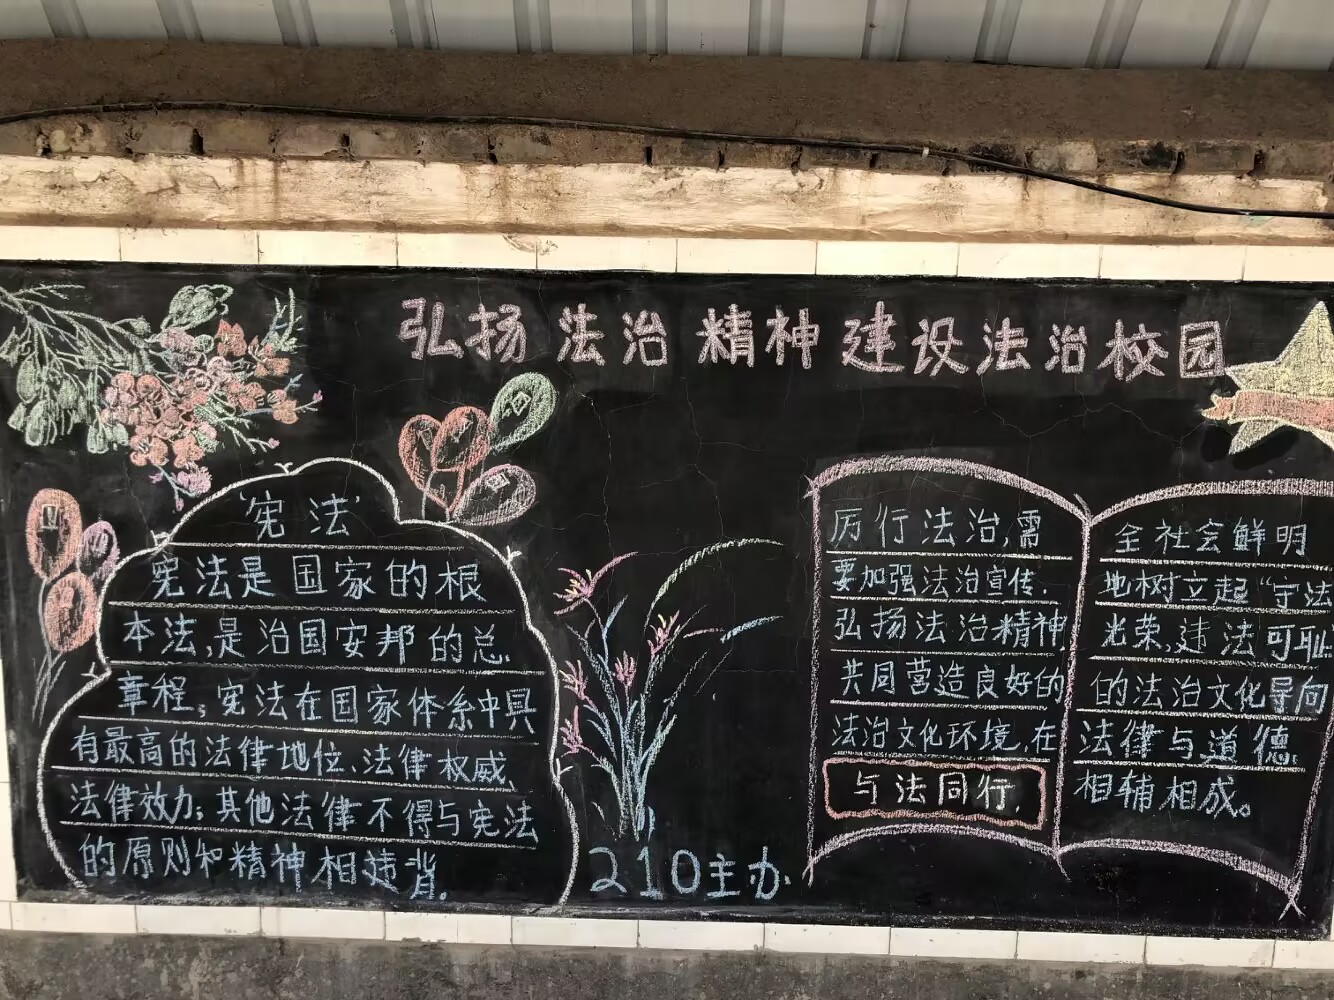 弘扬法治精神 建设法治校园
'宪法'
宪法是国家的根
本法,是治国安邦的总
章程;宪法在国家体系中具
有最高的法律地位、法律权威、
法律效力;其他法律不得与宪法
的原则和精神相违背。
210主办
厉行法治,需
要加强法治宣传.
弘扬法治精神
共同营造良好的
法治文化环境.在
与法同行.
全社会鲜明
地树立起“守法
光荣,违法可耻
的法治文化导向
法律与道德
相辅相成。